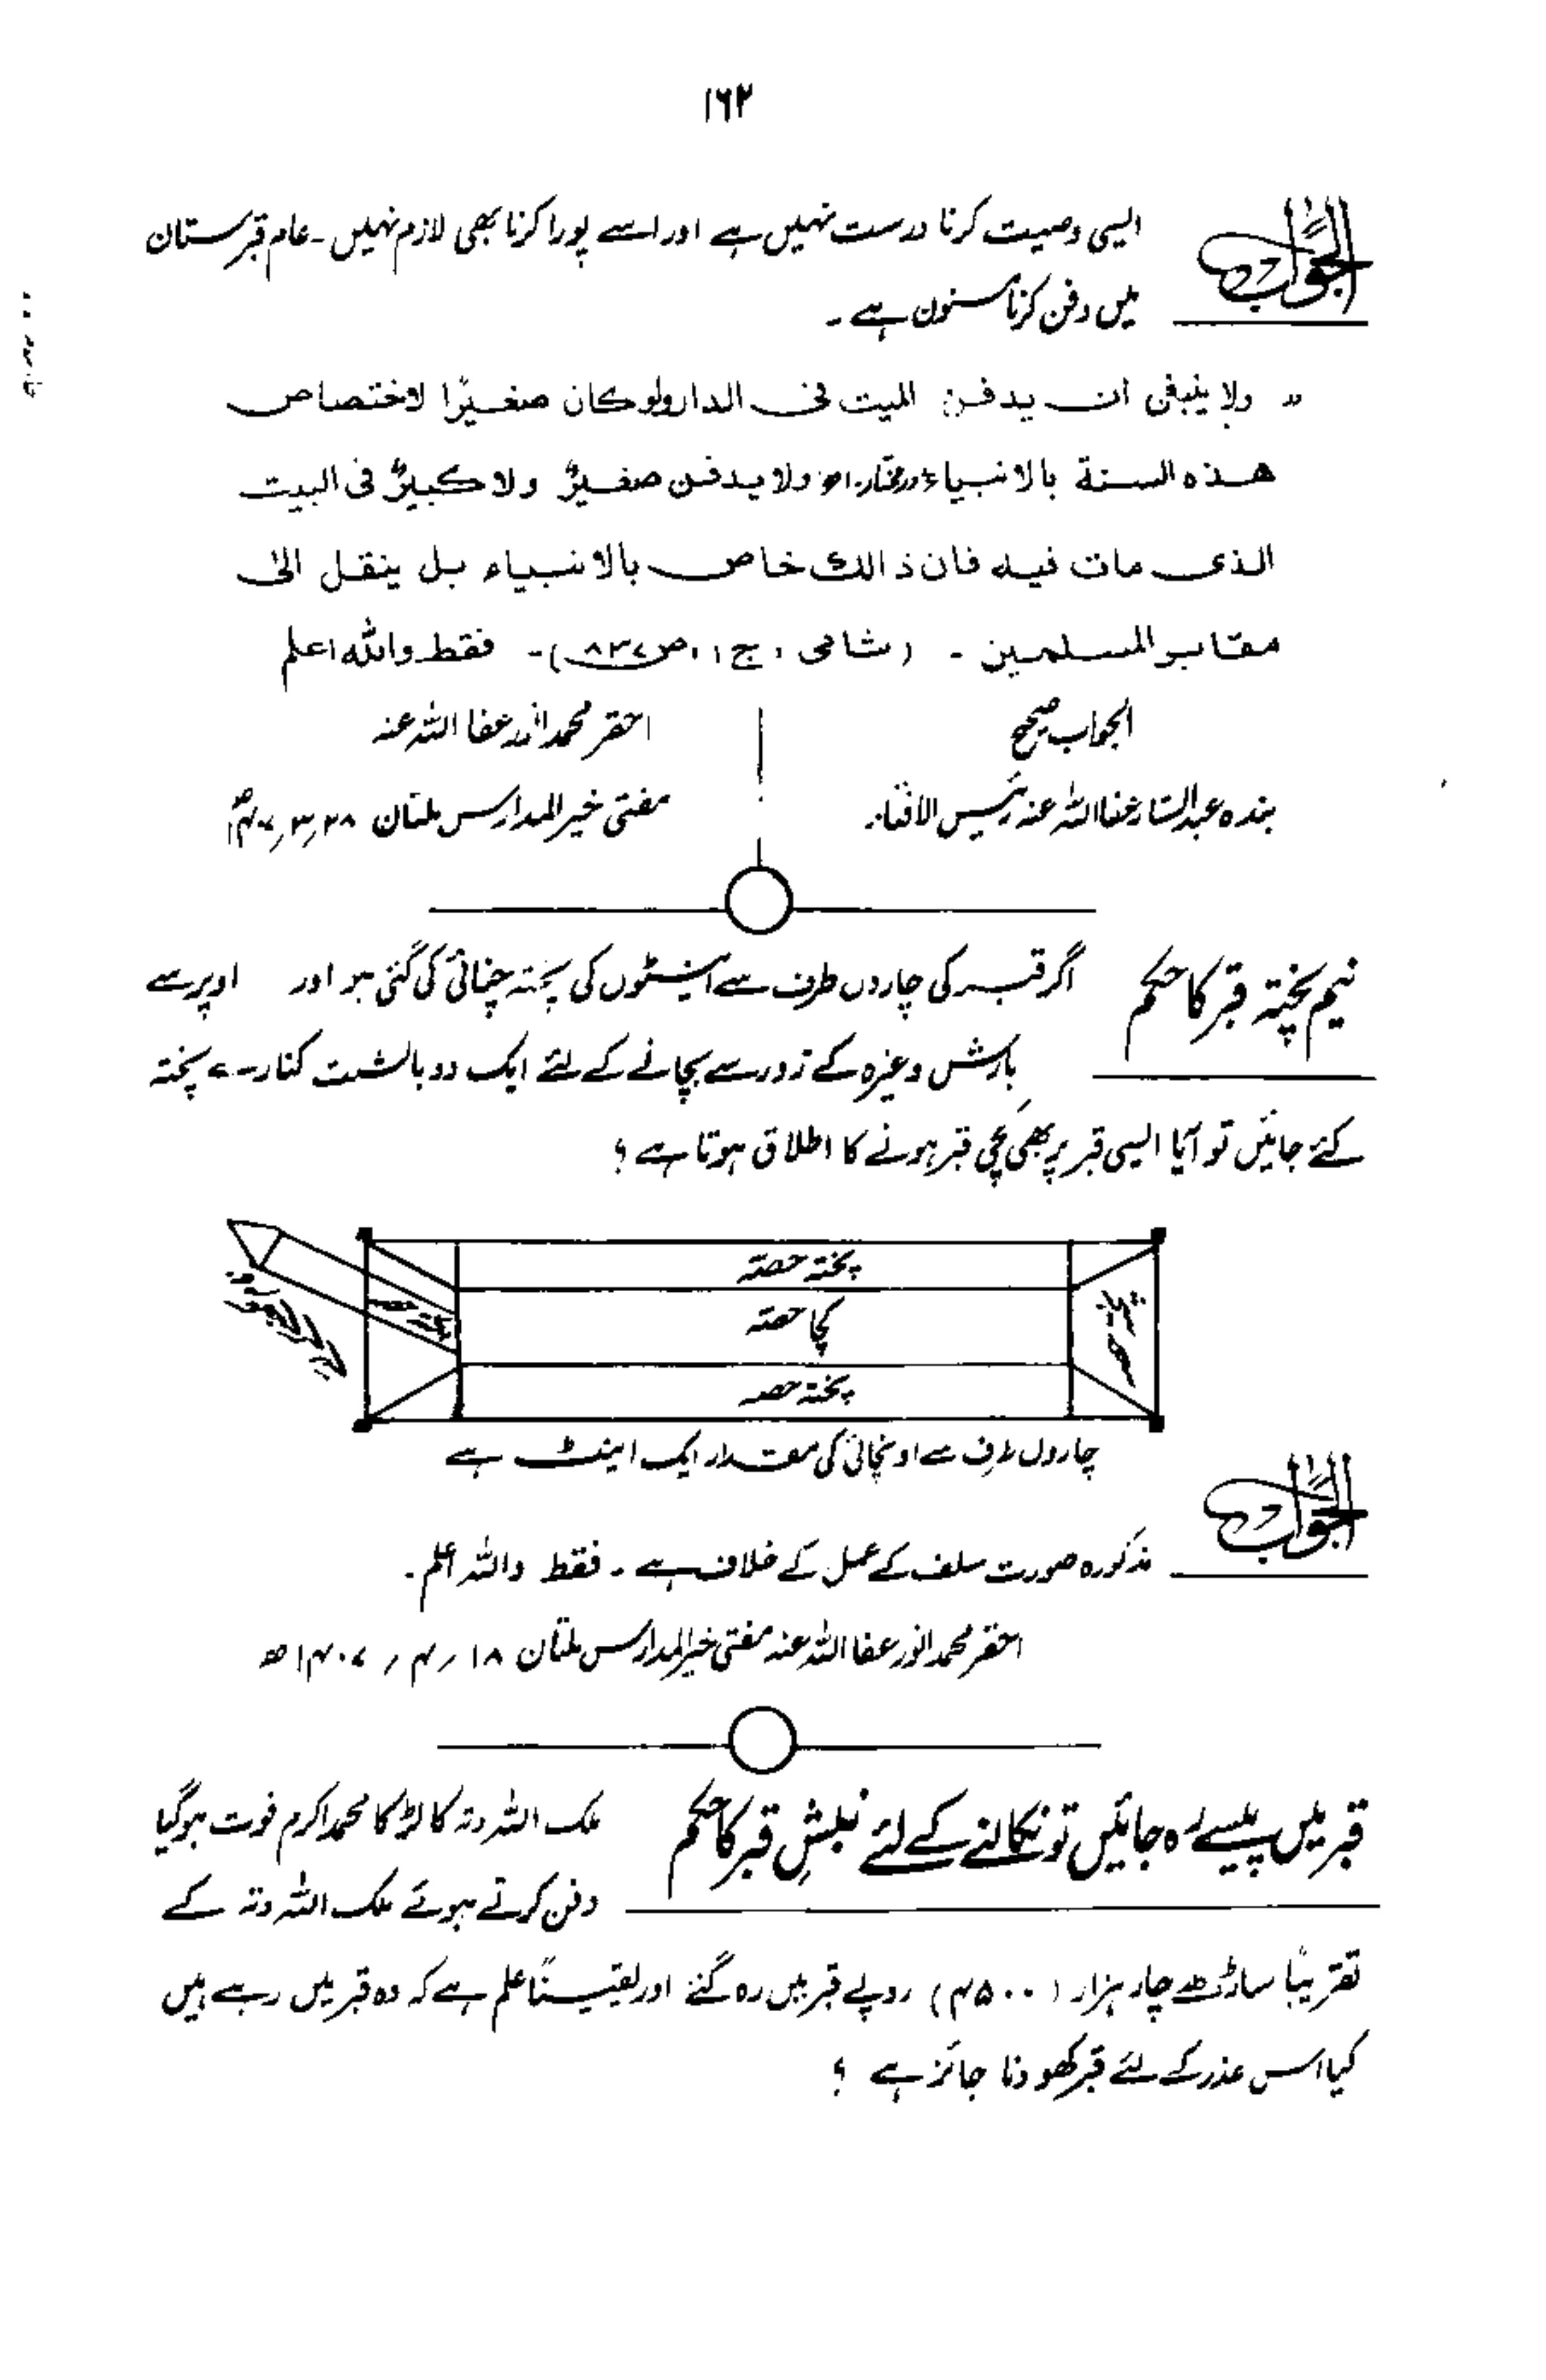 ۱۶۲
الجواب
ایسی وصیت کرنا درست نہیں ہے اور اسے پورا کرنا بھی لازم نہیں۔ عام قبرستان
میں دفن کرنا مسنون ہے۔
" ولا ینبغی ان یدفن المیت فی الدار ولو کان صغیرًا لاختصاص
ھذہ السنة بالانبیاء درمختار۔اھ ولا یدفن صغیرٌ ولا کبیرٌ فی البیت
الذی مات فیہ فان ذالک خاص بالانبیاء بل ینقل الی
مقابر المسلمین ۔ (شامی ، ج ۱ ، ص ۸۳۷)۔ فقط واللہ اعلم
الجواب صحیح
بندہ عبدالستار عفا اللہ عنہ رئیس الافتاء
احقر محمد انور عفا اللہ عنہ
مفتی خیر المدارس ملتان ۲۸، ۳، ۱۴۰۷ھ
نیم پختہ قبر کا حکم
اگر قبر کی چاروں طرف سے اینٹوں کی پختہ چنائی کی گئی ہو اور اوپر سے
بارش وغیرہ کے زور سے بچانے کے لئے ایک دو بالشت کنارے پختہ
کئے جائیں تو آیا ایسی قبر پر بھی کچی قبر ہونے کا اطلاق ہوتا ہے ؟
پختہ حصہ
کچا حصہ
پختہ حصہ
پختہ حصہ
پختہ حصہ
چاروں طرف سے اونچائی کی مقدار ایک اینٹ ہے
الجواب
مذکورہ صورت سلف کے عمل کے خلاف ہے ۔ فقط واللہ اعلم ۔
احقر محمد انور عفا اللہ عنہ مفتی خیر المدارس ملتان ۱۸ ؍ ۴ ؍ ۱۴۰۷ھ
قبر میں پیسے رہ جائیں تو نکالنے کے لئے نبشِ قبر کا حکم
ملک اللہ دتہ کا لڑکا محمد اکرم فوت ہو گیا
دفن کرتے ہوئے ملک اللہ دتہ کے
تقریبًا ساڑھے چار ہزار (۴۵۰۰) روپے قبر میں رہ گئے اور یقینًا علم ہے کہ وہ قبر میں رہے ہیں
کیا اس عذر کے لئے قبر کھودنا جائز ہے ؟